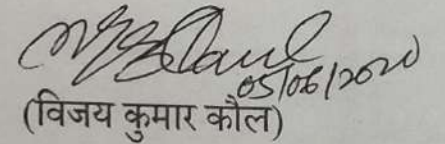 05/06/2020
(विजय कुमार कौल)